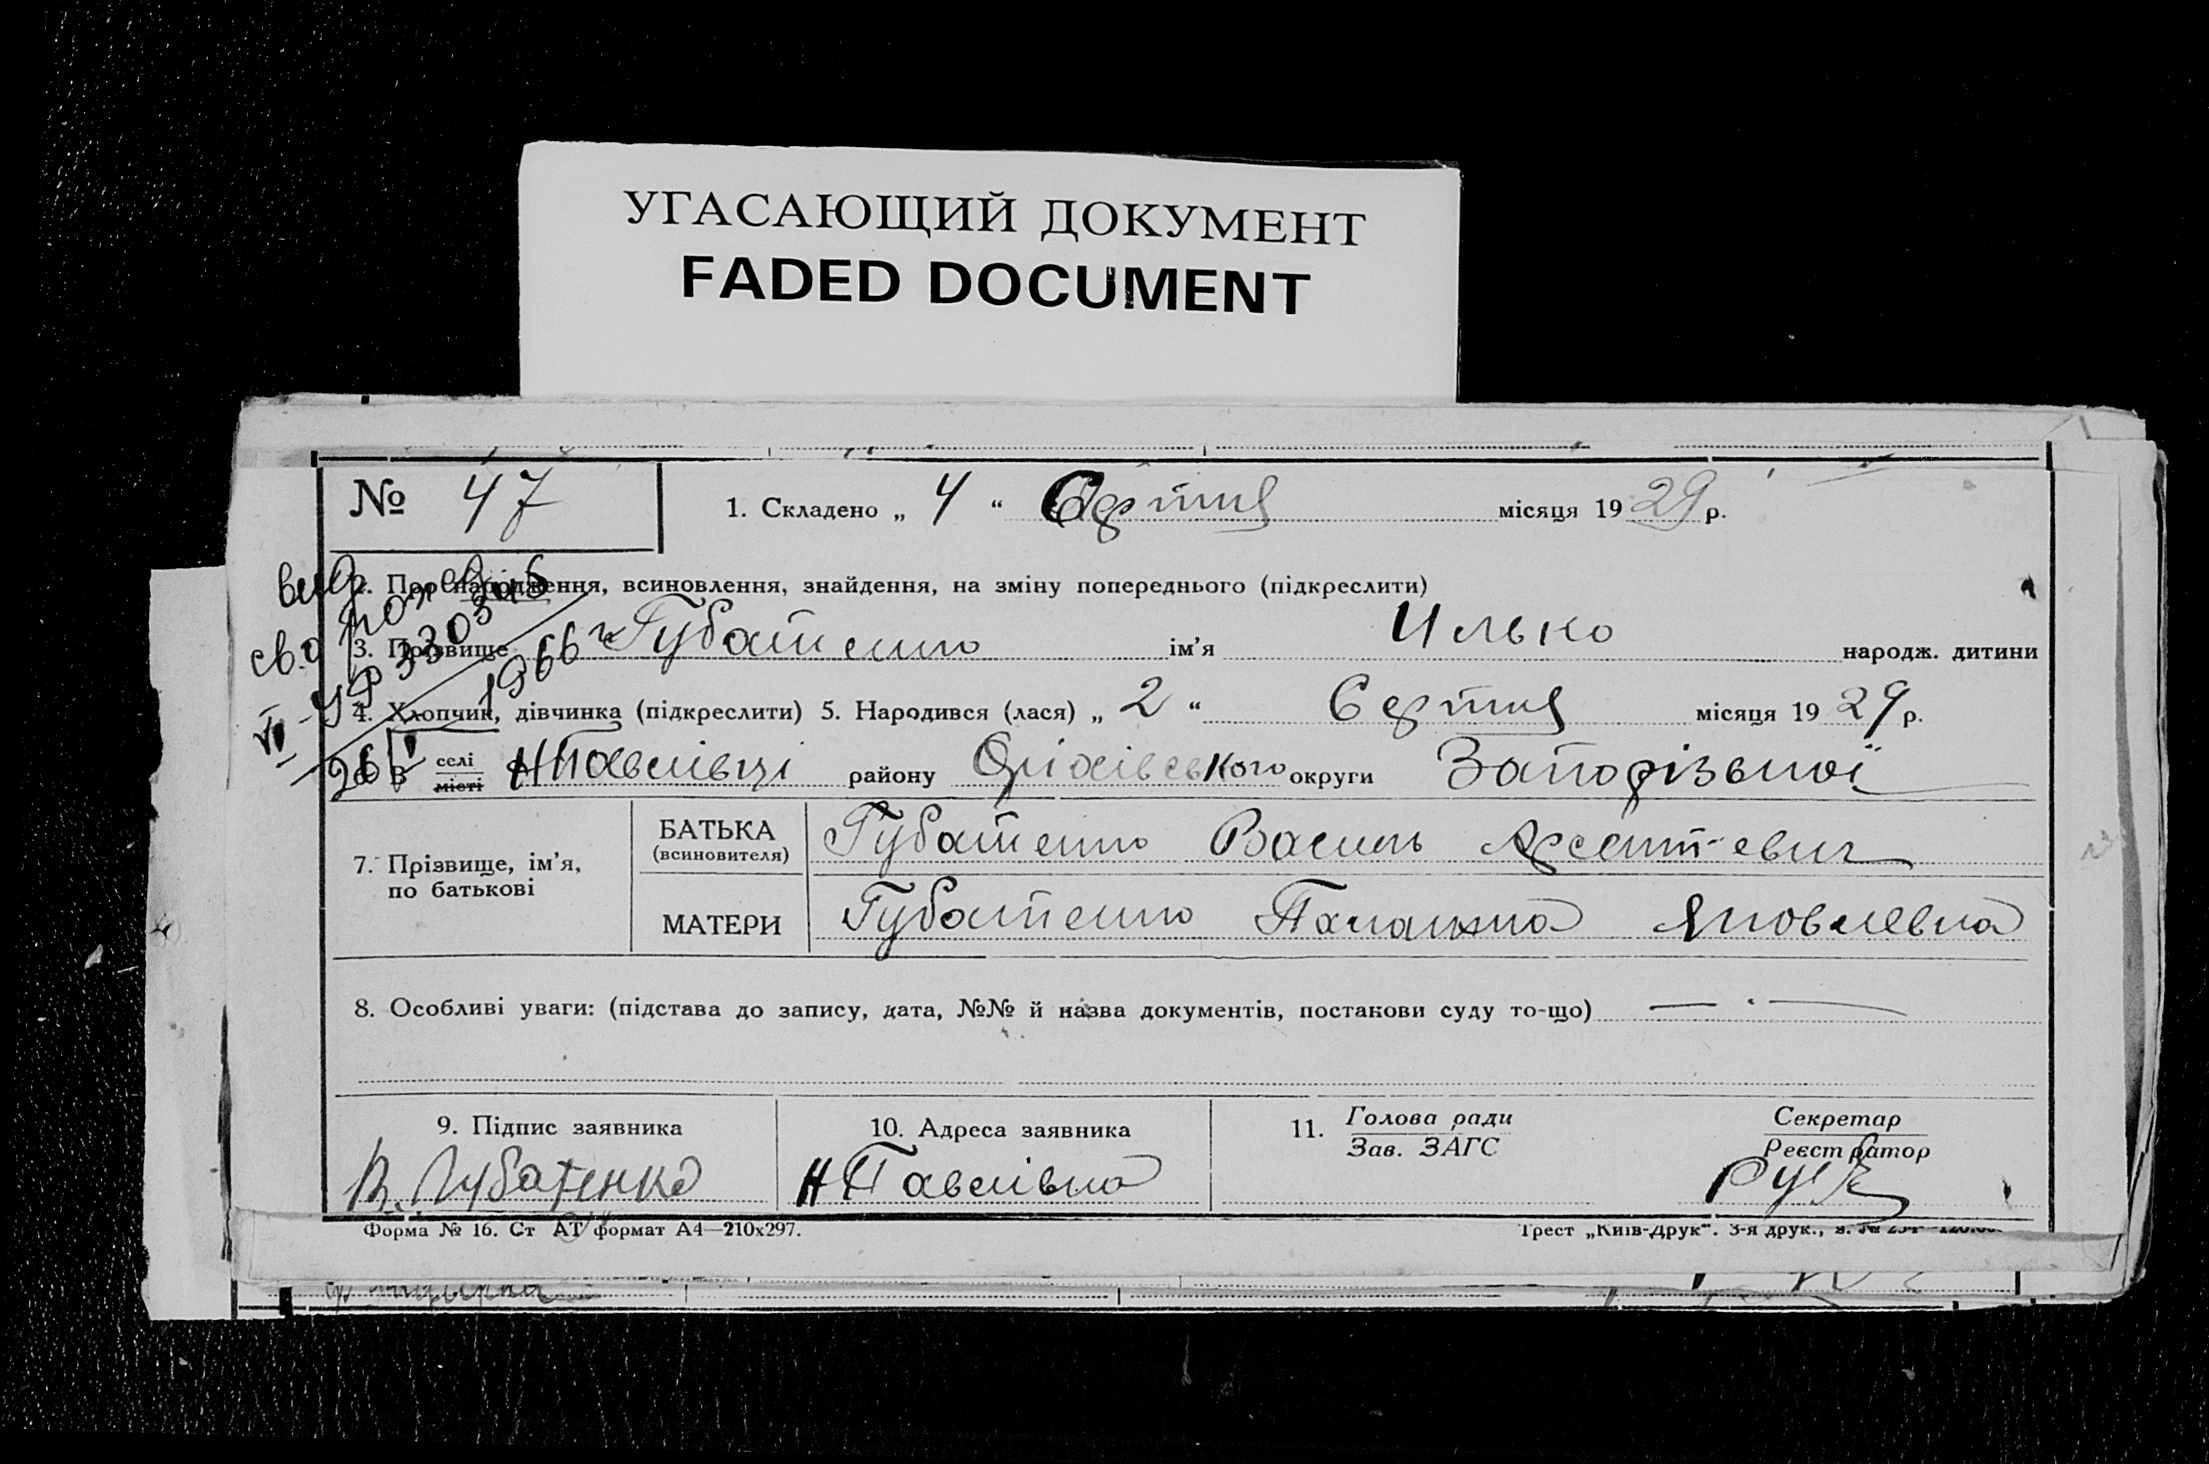 УГАСАЮЩИЙ ДОКУМЕНТ
FADED DOCUMENT
№ 47
1. Складено „ 4 “ Серпня місяця 1929 р.
2. Про народження, всиновлення, знайдення, на зміну попереднього (підкреслити)
3. Прізвище Губатенко ім’я Илько народж. дитини
4. Хлопчик, дівчинка (підкреслити) 5. Народився (лася) „ 2 “ Серпня місяця 1929 р.
6. В селі місті Н Павлівці району Оріхівського округи Запорізької
7. Прізвище, ім’я, по батькові
БАТЬКА (всиновителя) Губатенко Василь
МАТЕРИ Губатенко Яковлевна
8. Особливі уваги: (підстава до запису, дата, №№ й назва документів, постанови суду то-що)
9. Підпис заявника
10. Адреса заявника
11. Голова ради
Зав. ЗАГС
Секретар
Реєстратор
В. Губатенко
Н Павлівка
Форма № 16. Ст АТ формат А4—210х297.
Трест „Київ-Друк“. 3-я друк.,
выд. пов.
св.о
1966 г